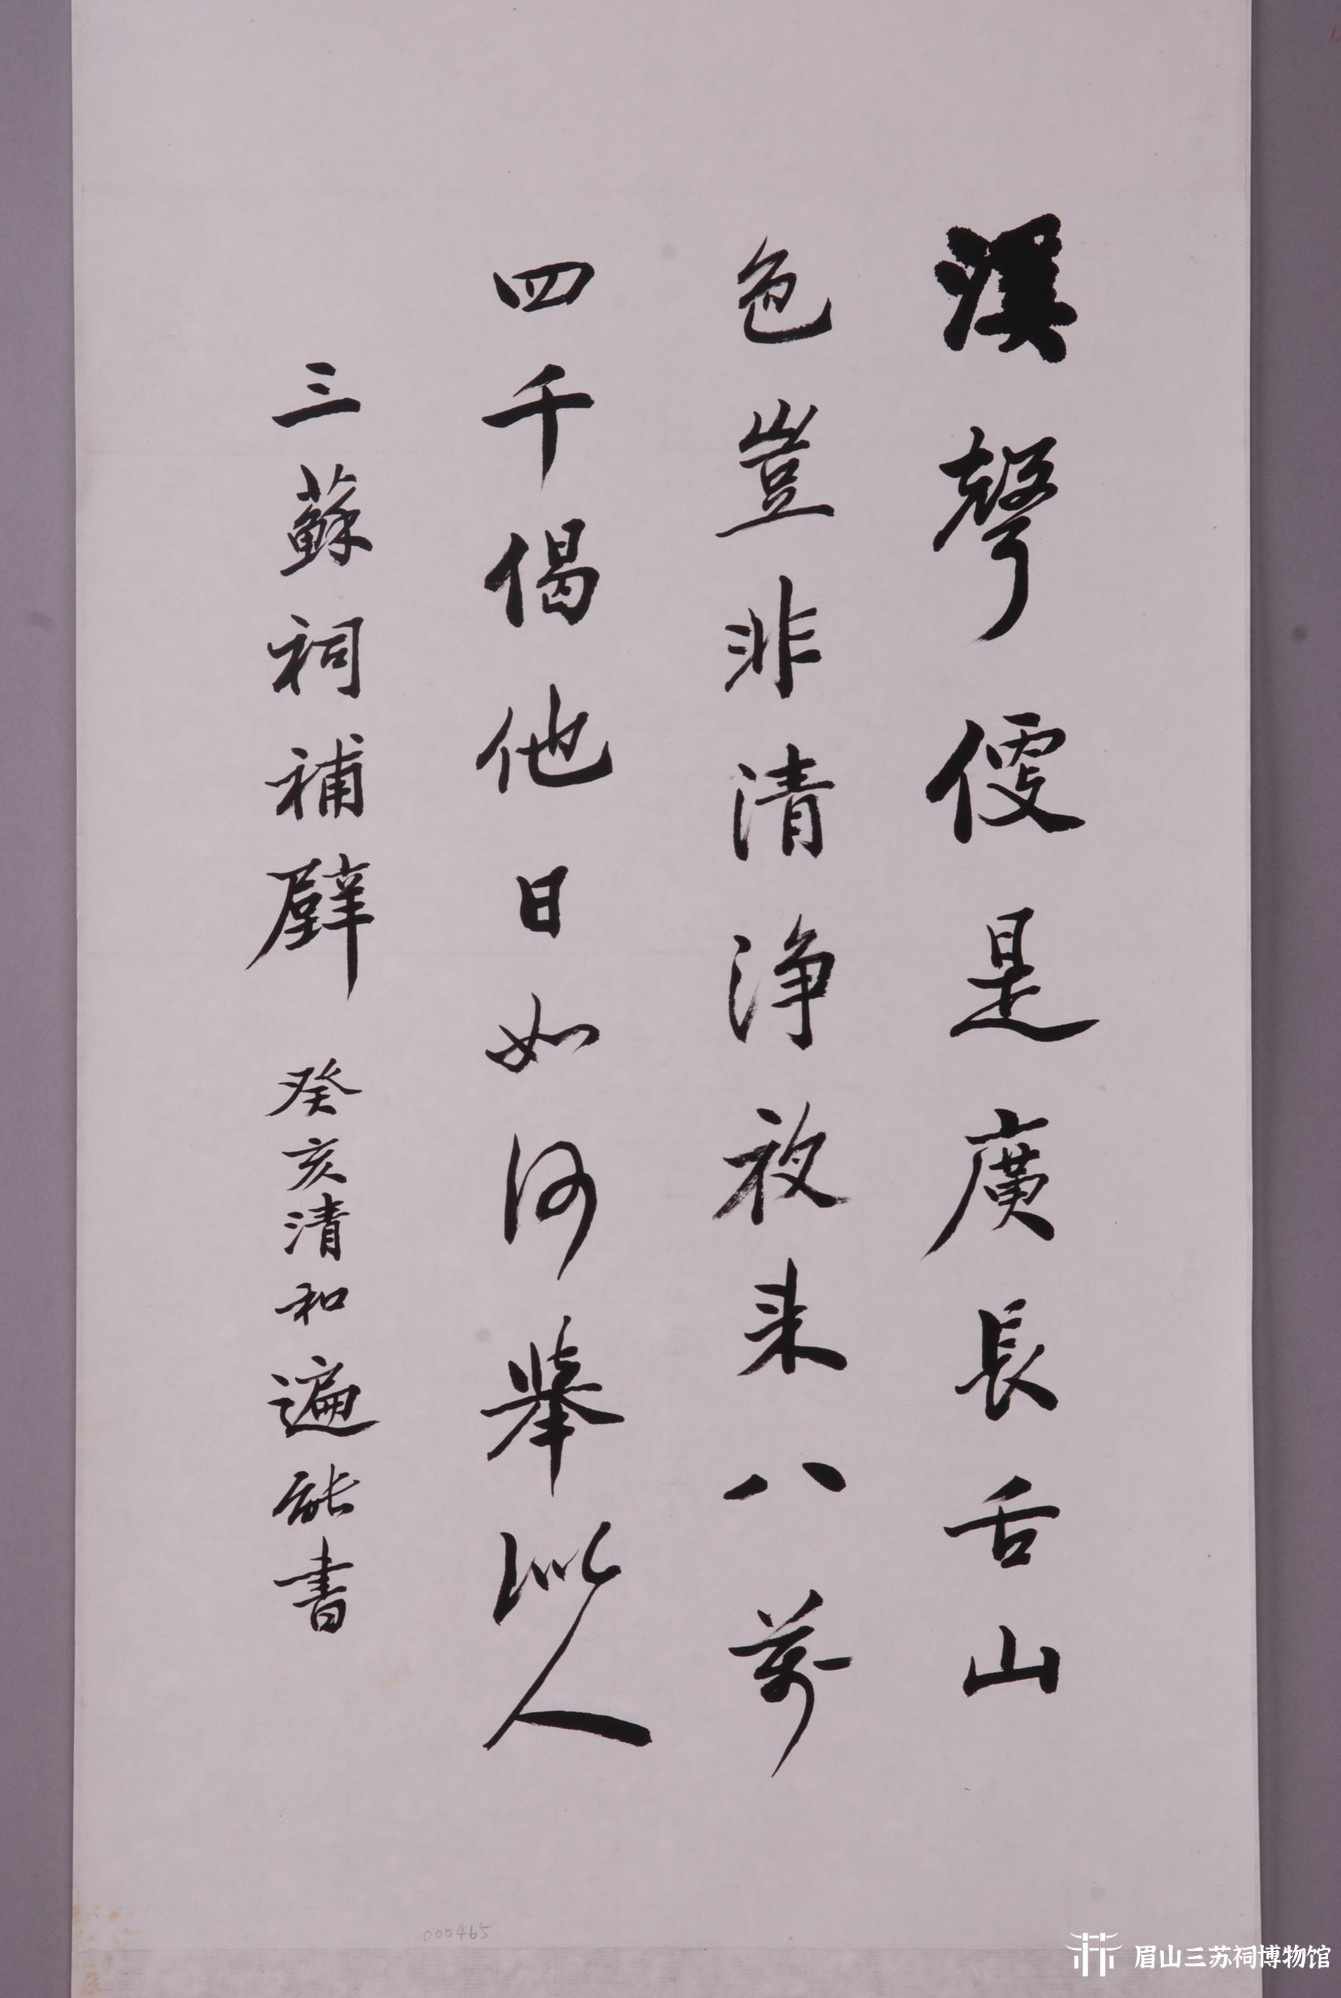 溪聲便是廣長舌山
色豈非清淨夜来八萬
四千偈他日如何舉似人
三蘇祠補壁
癸亥清和遍能書
000465
眉山三苏祠博物馆